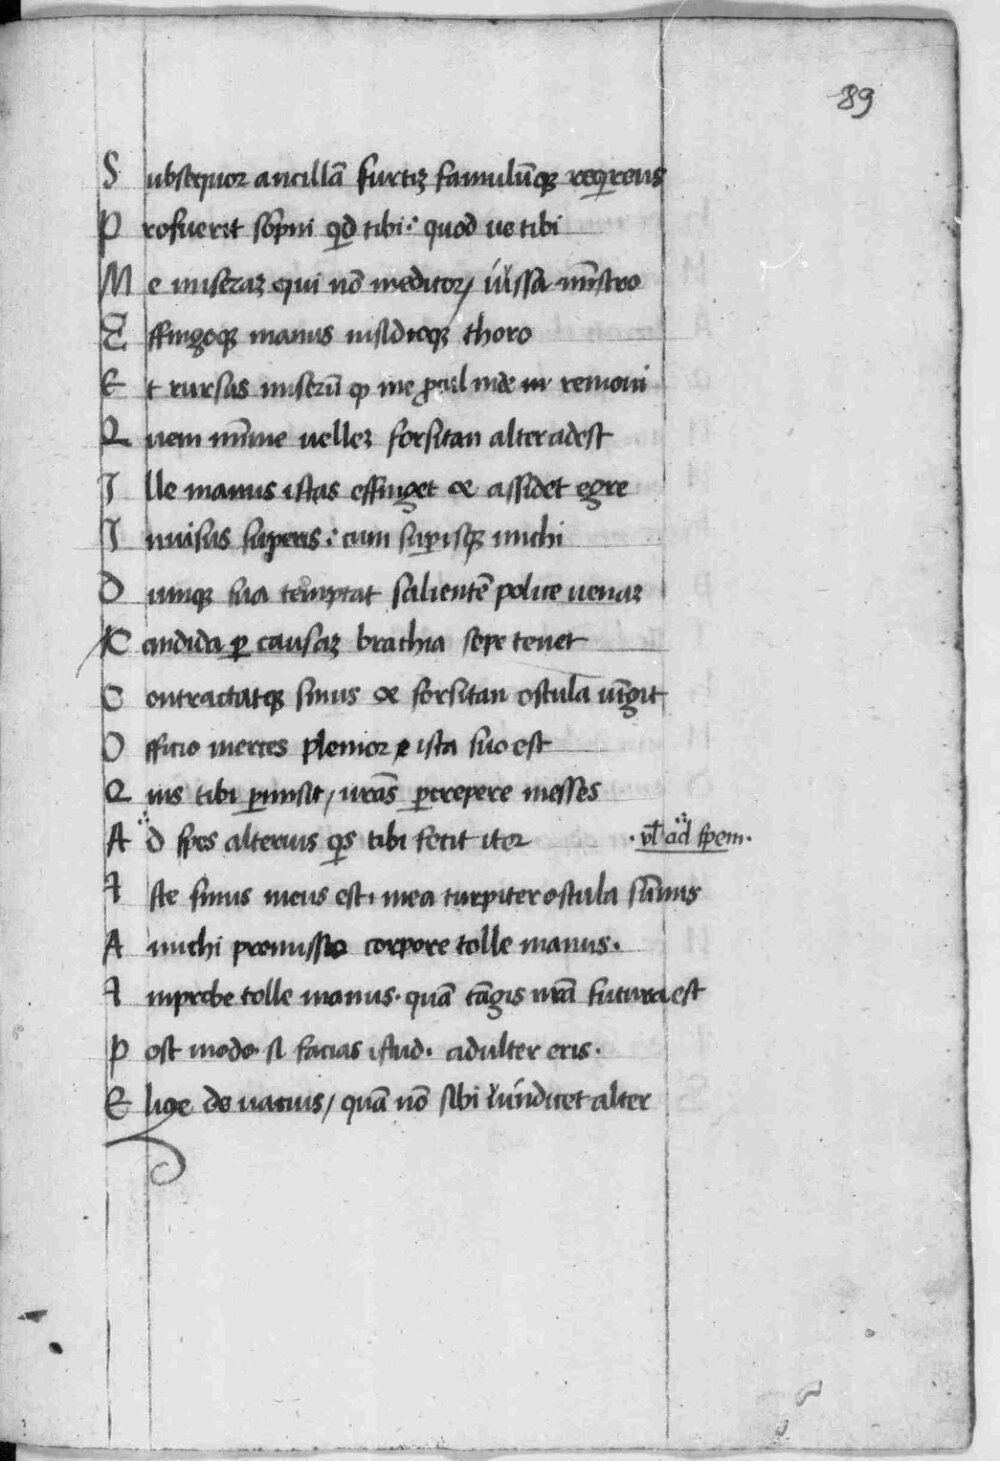 89
Subsequor ancillã furtiʒ famulũqꝫ reqͥrens
Profuerit sõpni qͥd tibi: quod ue tibi
Me miseraʒ qui nõ meditor, iussa mĩstro
Effingoqꝫ manus insidioqꝫ thoro
Et rursus miserũ ꝙ me ꝓcul inde remoui
Quem mĩme velleʒ forsitan alter adest
Ille manus istas effinget & assidet egre
Inuisus superis: cum supisqꝫ michi
Dumqꝫ sua temptat salientẽ police uenaʒ
Candida ꝑ causaʒ brachia sepe tenet
Contractatqꝫ sinus & forsitan oscula iũgit
Officio merces plenior ista suo est
Quis tibi ꝑmisit, nr̃as ꝑcrepere messes
Ad spes alterius qͥs tibi fecit iter
·vl̃ ad spem·
Iste sinus meus est. mea turpiter oscula sũmis
A michi promisso corpore tolle manus.
Improbe tolle manus. quã tãgis nr̃a futura est
Post modo si facias istud. adulter eris.
Elige de uacuis, quã nõ sibi uindicet alter